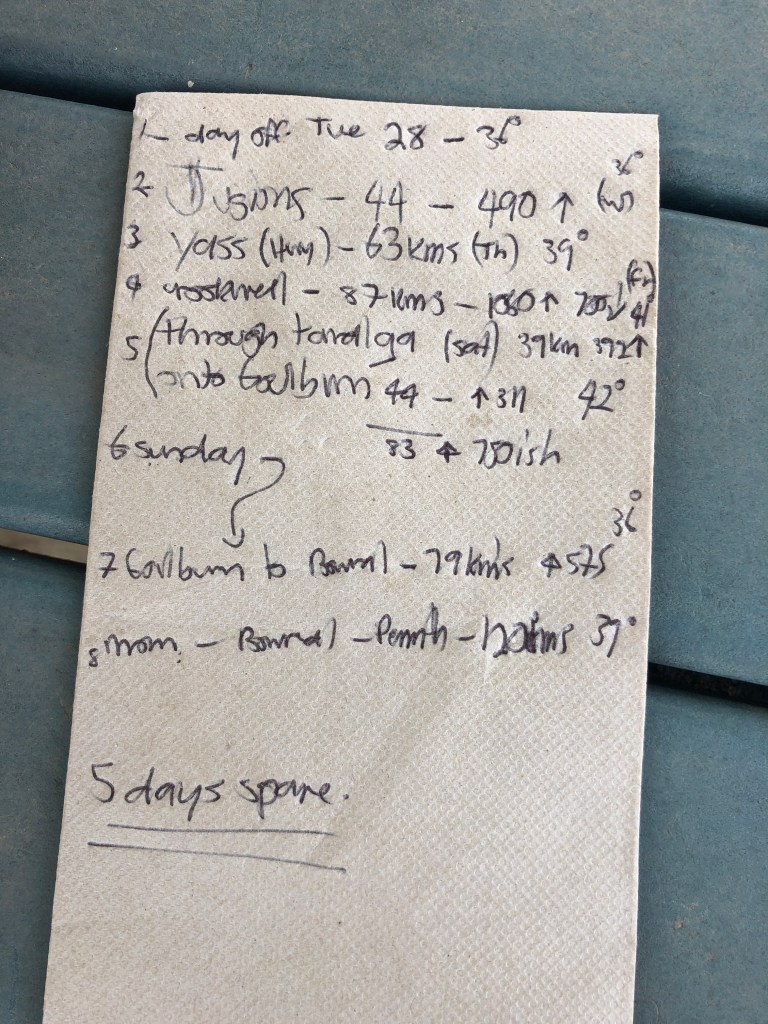 1 - day off Tue 28 - 36°
2 Jugiong - 44 - 490 ↑ (W) 36°
3 Yass (Hum) - 63kms (Th) 39°
4 Crookwell - 87kms - 1060↑ 700↓ (Fr) 41°
5 (through taralga (sat) 39km 392↑
(onto Goulburn 44 - ↑311 42°
83 ↑ 750ish
6 Sunday
36°
7 Goulburn to Bowral - 79kms ↑575
8 mon. - Bowral - Penrith - 120kms 37°
5 days spare.